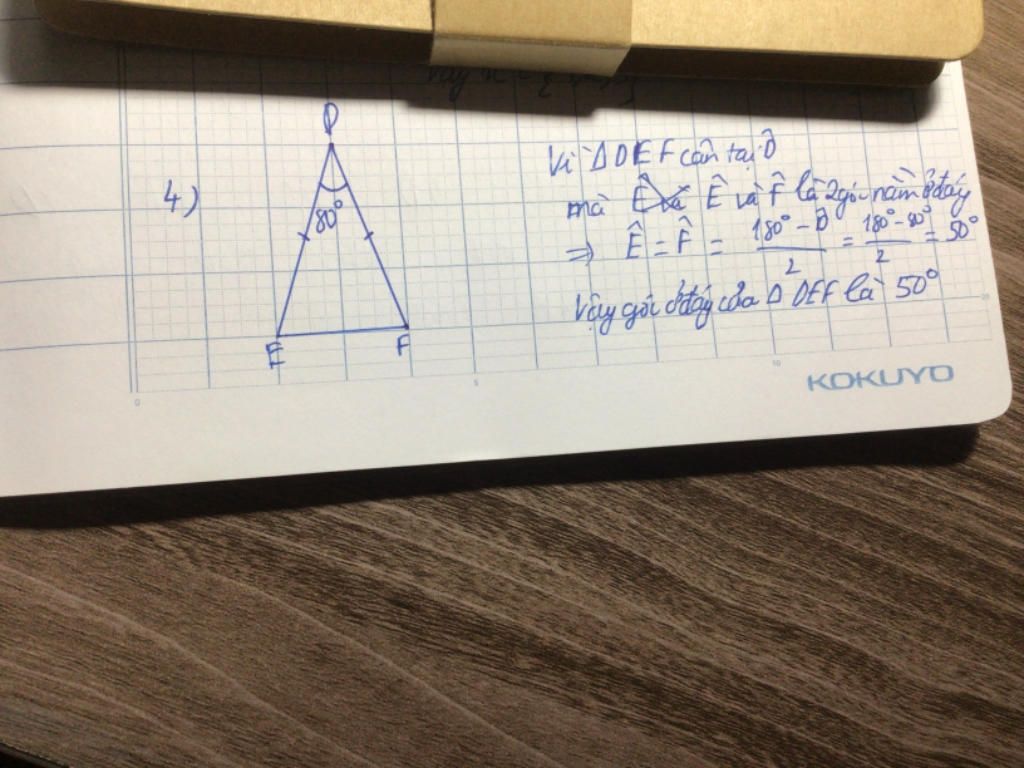 4)
D
80°
E
F
Vì Δ DEF cân tại D
mà Ê và F̂ là 2 góc nằm ở đáy
⇒ Ê = F̂ = (180° - D̂)/2 = (180° - 80°)/2 = 50°
Vậy góc ở đáy của Δ DEF là 50°
0 5 10 20
KOKUYO